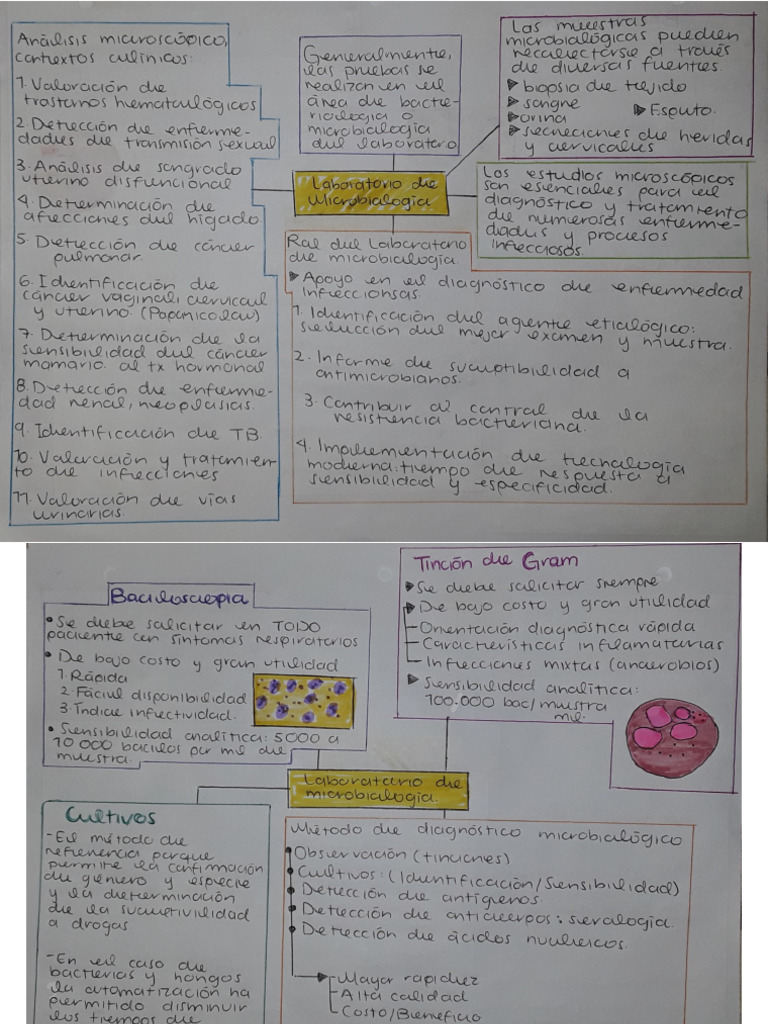 Análisis microscópico,
contextos clínicos:
1. Valoración de
trastornos hematológicos
2. Detección de enferme-
dades de transmisión sexual
3. Análisis de sangrado
uterino disfuncional
4. Determinación de
afecciones del hígado
5. Detección de cáncer
pulmonar.
6. Identificación de
cáncer vaginal, cervical
y uterino. (Papanicolau)
7. Determinación de la
sensibilidad del cáncer
mamario. al tx hormonal
8. Detección de enferme-
dad renal, neoplasias.
9. Identificación de TB.
10. Valoración y tratamien-
to de infecciones
11. Valoración de vías
urinarias.
Generalmente,
las pruebas se
realizan en el
área de bacte-
riología o
microbiología
del laboratorio
Las muestras
microbiológicas pueden
recolectarse a través
de diversas fuentes.
biopsia de tejido
sangre
Esputo.
orina
secreciones de heridas
y cervicales
Laboratorio de
Microbiología
Los estudios microscópicos
son esenciales para el
diagnóstico y tratamiento
de numerosas enferme-
dades y procesos
infecciosos.
Rol del Laboratorio
de microbiología.
Apoyo en el diagnóstico de enfermedad
infecciosas.
1. Identificación del agente etiológico:
selección del mejor examen y muestra.
2. Informe de suceptibilidad a
antimicrobianos.
3. Contribuir al control de la
resistencia bacteriana.
4. Implementación de tecnología
moderna: tiempo de respuesta y
sensibilidad y especificidad.
Baciloscopia
• Se debe solicitar en TODO
paciente con síntomas respiratorios
• De bajo costo y gran utilidad
1. Rápida
2. Fácil disponibilidad
3. Índice infectividad.
• Sensibilidad analítica: 5000 a
10 000 bacilos por ml de
muestra.
Tinción de Gram
Se debe solicitar siempre
De bajo costo y gran utilidad
Orientación diagnóstica rápida
Características inflamatorias
Infecciones mixtas (anaerobios)
Sensibilidad analítica:
100.000 bac/muestra
ml.
Laboratorio de
microbiología.
Cultivos
- Es el método de
referencia porque
permite la confirmación
de género y especie
y la determinación
de la sucetividad
a drogas
- En el caso de
bacterias y hongos
la automatización ha
permitido disminuir
los tiempos de
Método de diagnóstico microbiológico
Observación (tinciones)
Cultivos: (Identificación/Sensibilidad)
Detección de antígenos.
Detección de anticuerpos: serología.
Detección de ácidos nucleicos.
Mayor rapidez
Alta calidad
Costo/Beneficio